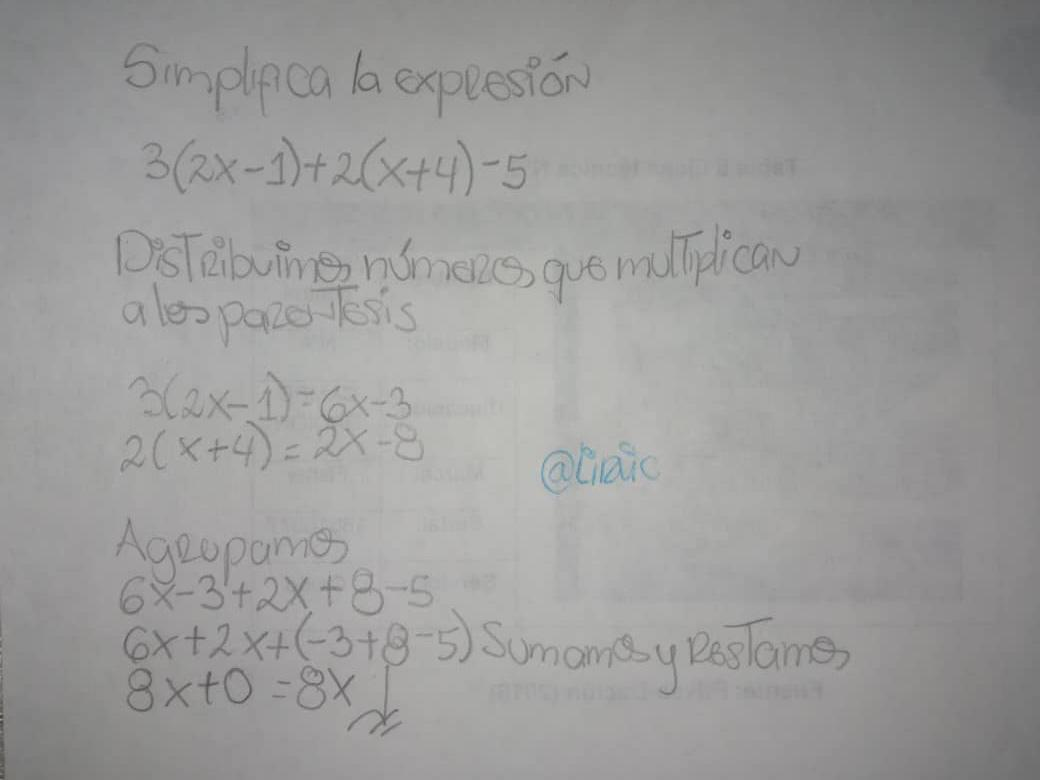 Simplifica la expresión
3(2x-1)+2(x+4)-5
Distribuimos números que multiplican
a los parentesis
3(2x-1)=6x-3
2(x+4)=2x-8
@Liraic
Agrupamos
6x-3+2x+8-5
6x+2x+(-3+8-5) Sumamos y Restamos
8x+0=8x